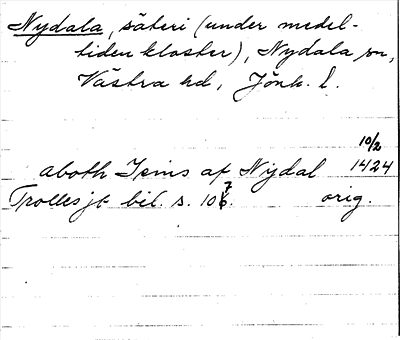 Nydala, säteri (under medel-
tiden kloster), Nydala sn,
Västra hd, Jönk. l.
10/2
aboth Jeins af Nydal 1424
Trolles jb bil. s. 107. orig.